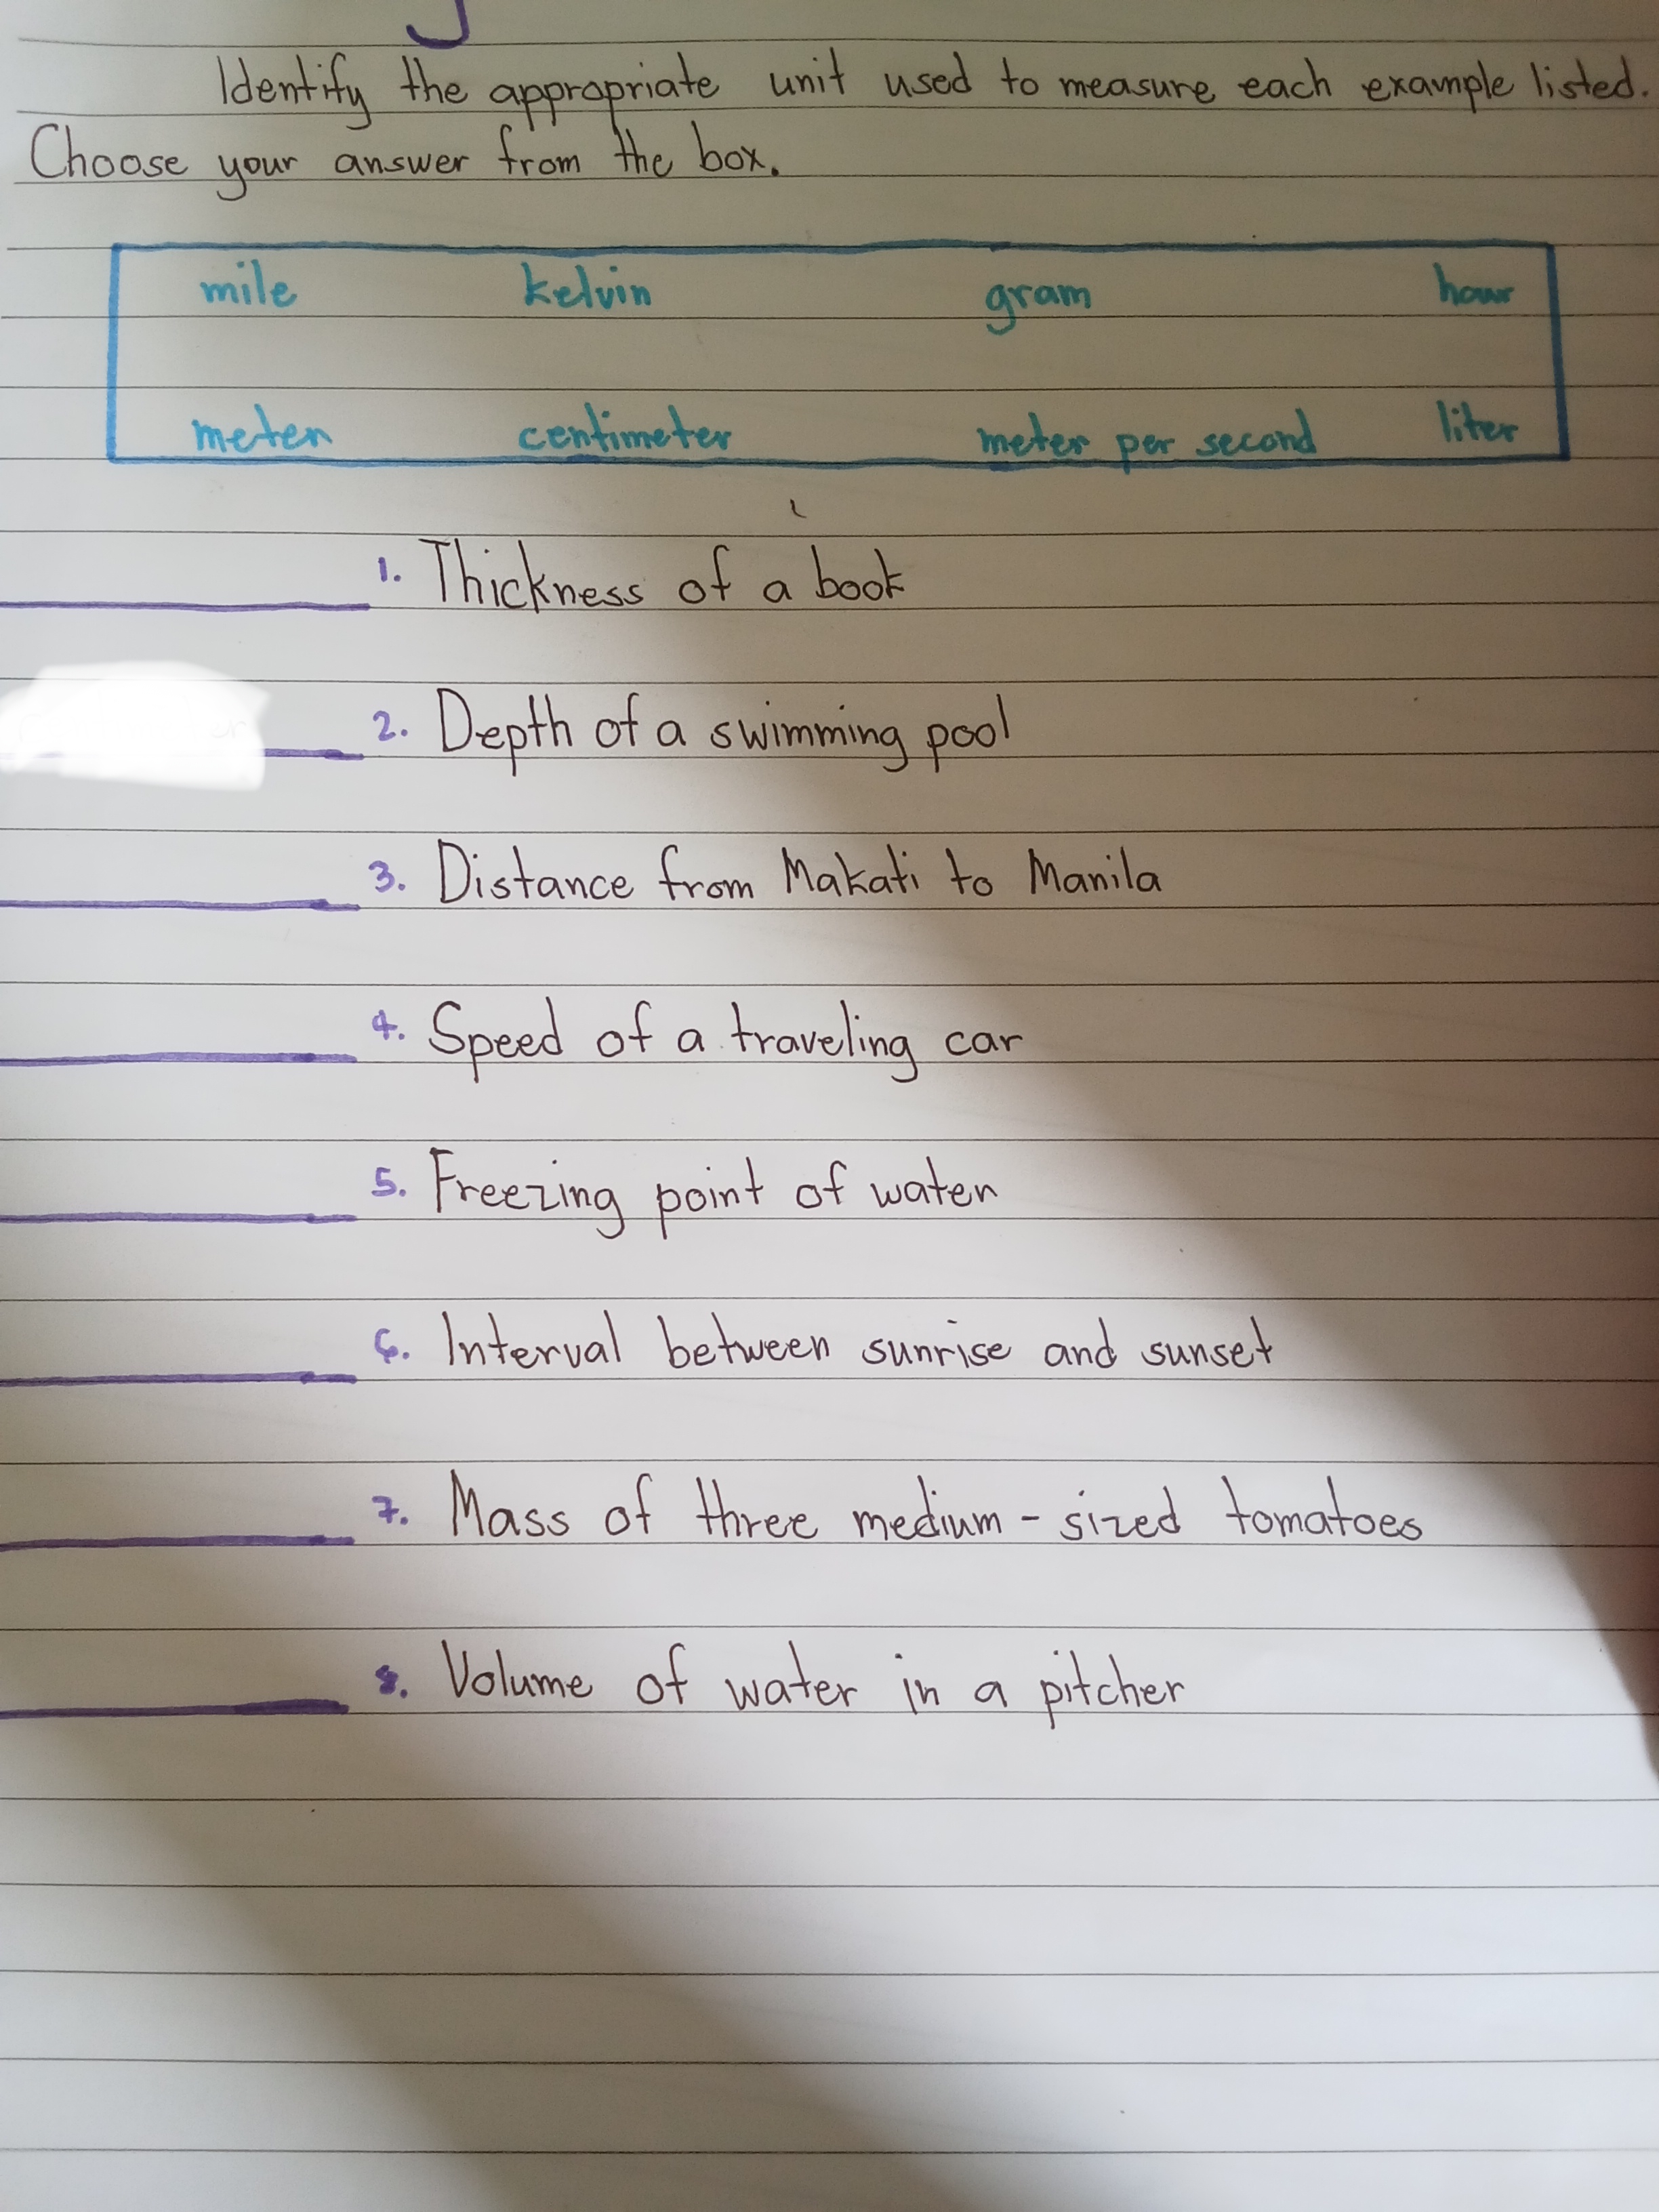 Identify the appropriate unit used to measure each example listed.
Choose your answer from the box.
mile kelvin gram hour
meter centimeter meter per second liter
1. Thickness of a book
2. Depth of a swimming pool
3. Distance from Makati to Manila
4. Speed of a traveling car
5. Freezing point of water
6. Interval between sunrise and sunset
7. Mass of three medium-sized tomatoes
8. Volume of water in a pitcher